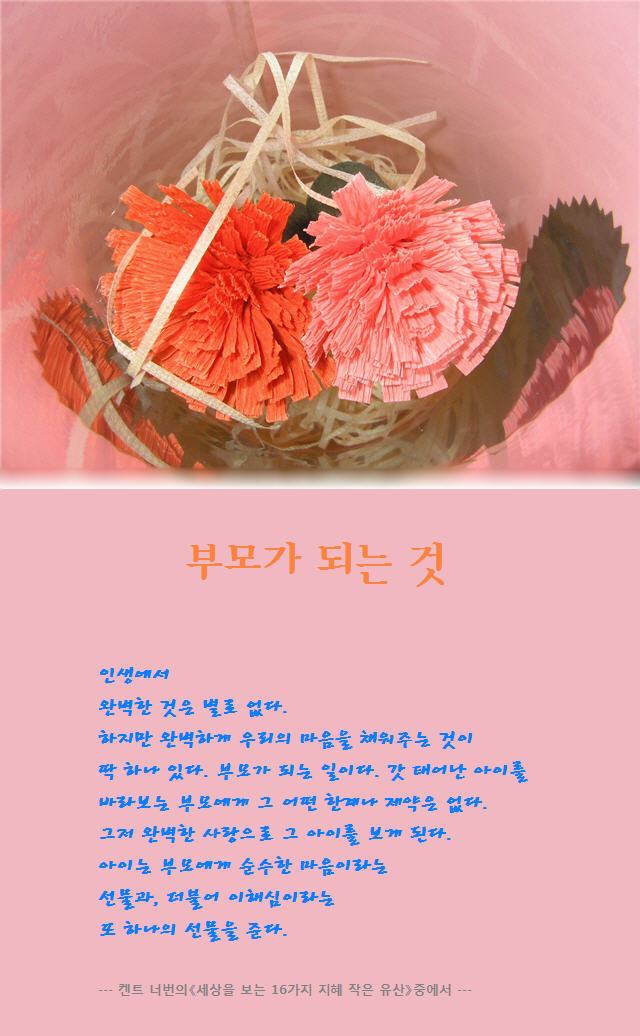 부모가 되는 것
인생에서
완벽한 것은 별로 없다.
하지만 완벽하게 우리의 마음을 채워주는 것이
딱 하나 있다. 부모가 되는 일이다. 갓 태어난 아이를
바라보는 부모에게 그 어떤 한계나 제약은 없다.
그저 완벽한 사랑으로 그 아이를 보게 된다.
아이는 부모에게 순수한 마음이라는
선물과, 더불어 이해심이라는
또 하나의 선물을 준다.
--- 켄트 너번의《세상을 보는 16가지 지혜 작은 유산》중에서 ---